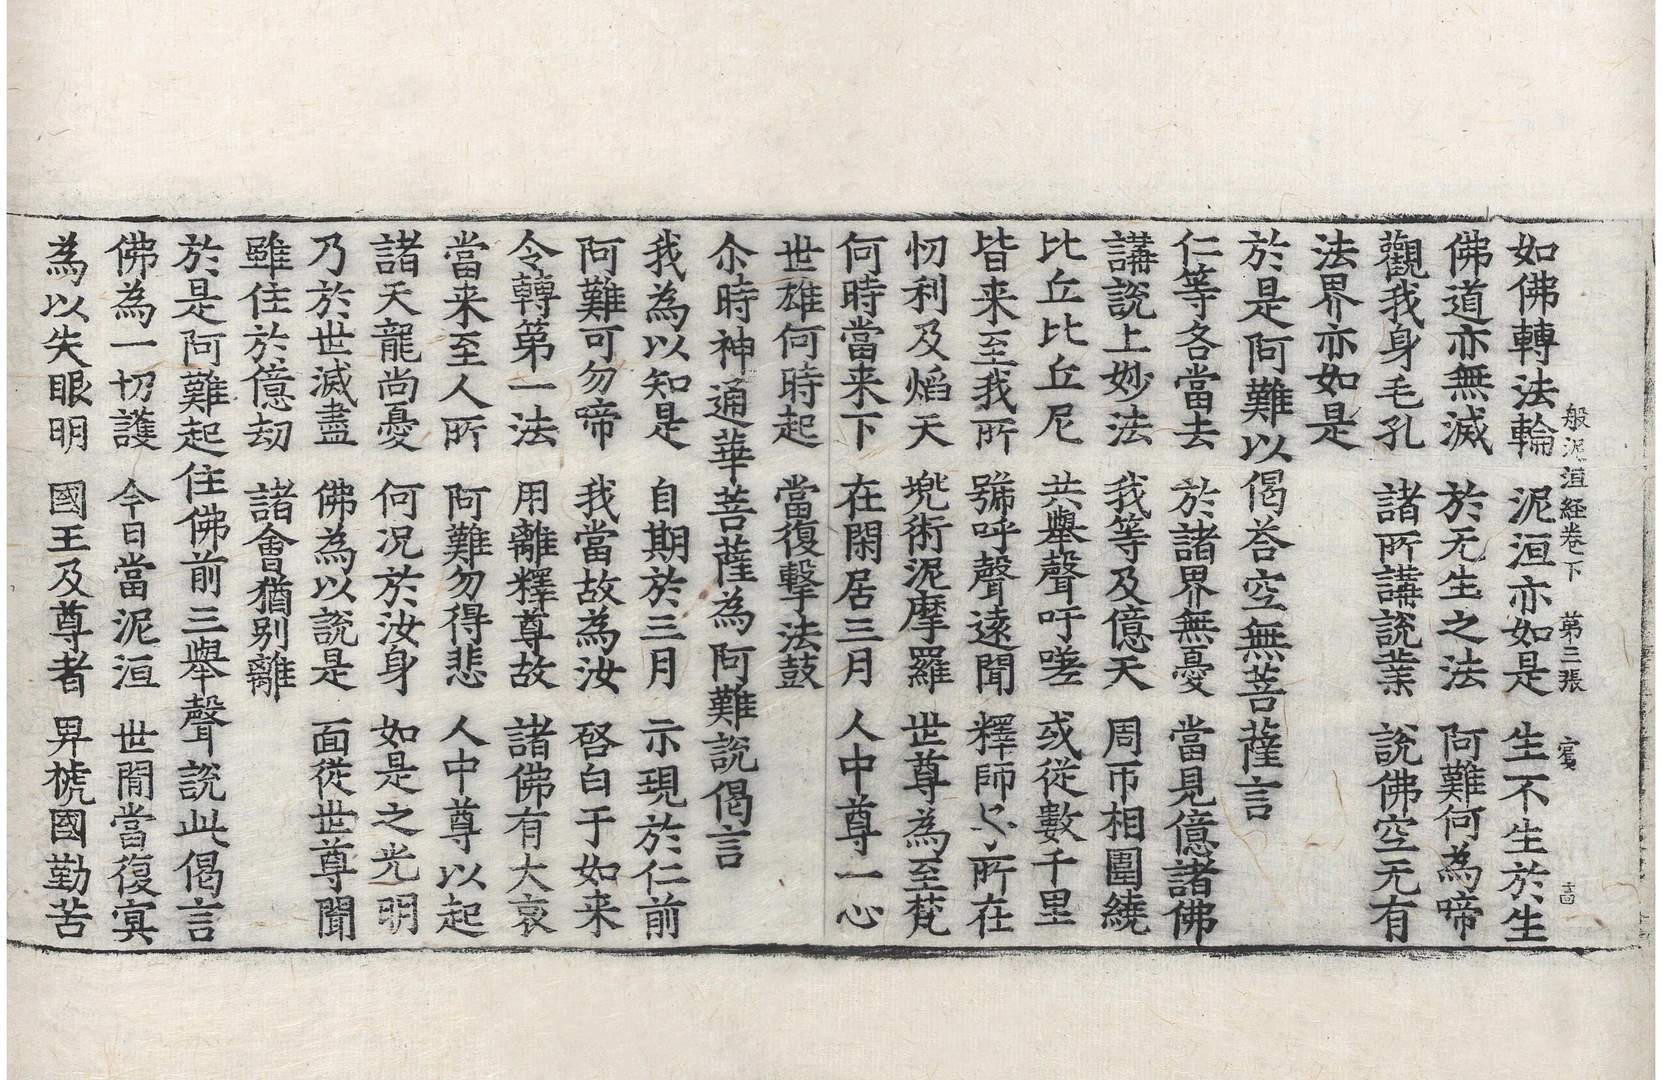 般泥洹経卷下　第三張　賓
如佛轉法輪　泥洹亦如是　生不生於生
佛道亦無滅　於无生之法　阿難何為啼
觀我身毛孔　諸所講說業　說佛空无有
法界亦如是
於是阿難以偈荅空無菩薩言
仁等各當去　於諸界無憂　當見億諸佛
講說上妙法　我等及億天　周帀相圍繞
比丘比丘尼　共舉聲吁嗟　或從數千里
皆来至我所　號呼聲遠聞　釋師子所在
忉利及焰天　兠術泥摩羅　世尊為至梵
何時當来下　在閑居三月　人中尊一心
世雄何時起　當復擊法鼓
尒時神通華菩薩為阿難說偈言
我為以知是　自期於三月　示現於仁前
阿難可勿啼　我當故為汝　啓白于如来
令轉第一法　用離釋尊故　諸佛有大哀
當来至人所　阿難勿得悲　人中尊以起
諸天龍尚憂　何況於汝身　如是之光明
乃於世滅盡　佛為以說是　面從世尊聞
雖住於億劫　諸會猶别離
於是阿難起住佛前三舉聲說此偈言
佛為一切護　今日當泥洹　世閒當復冥
為以失眼明　國王及尊者　畀㮛國勤苦